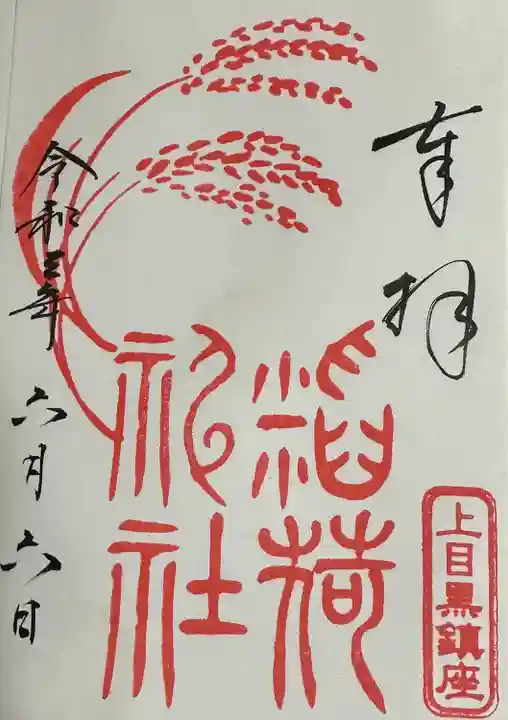 奉拝
上目黒鎮座
稲荷
神社
令和三年
六月六日